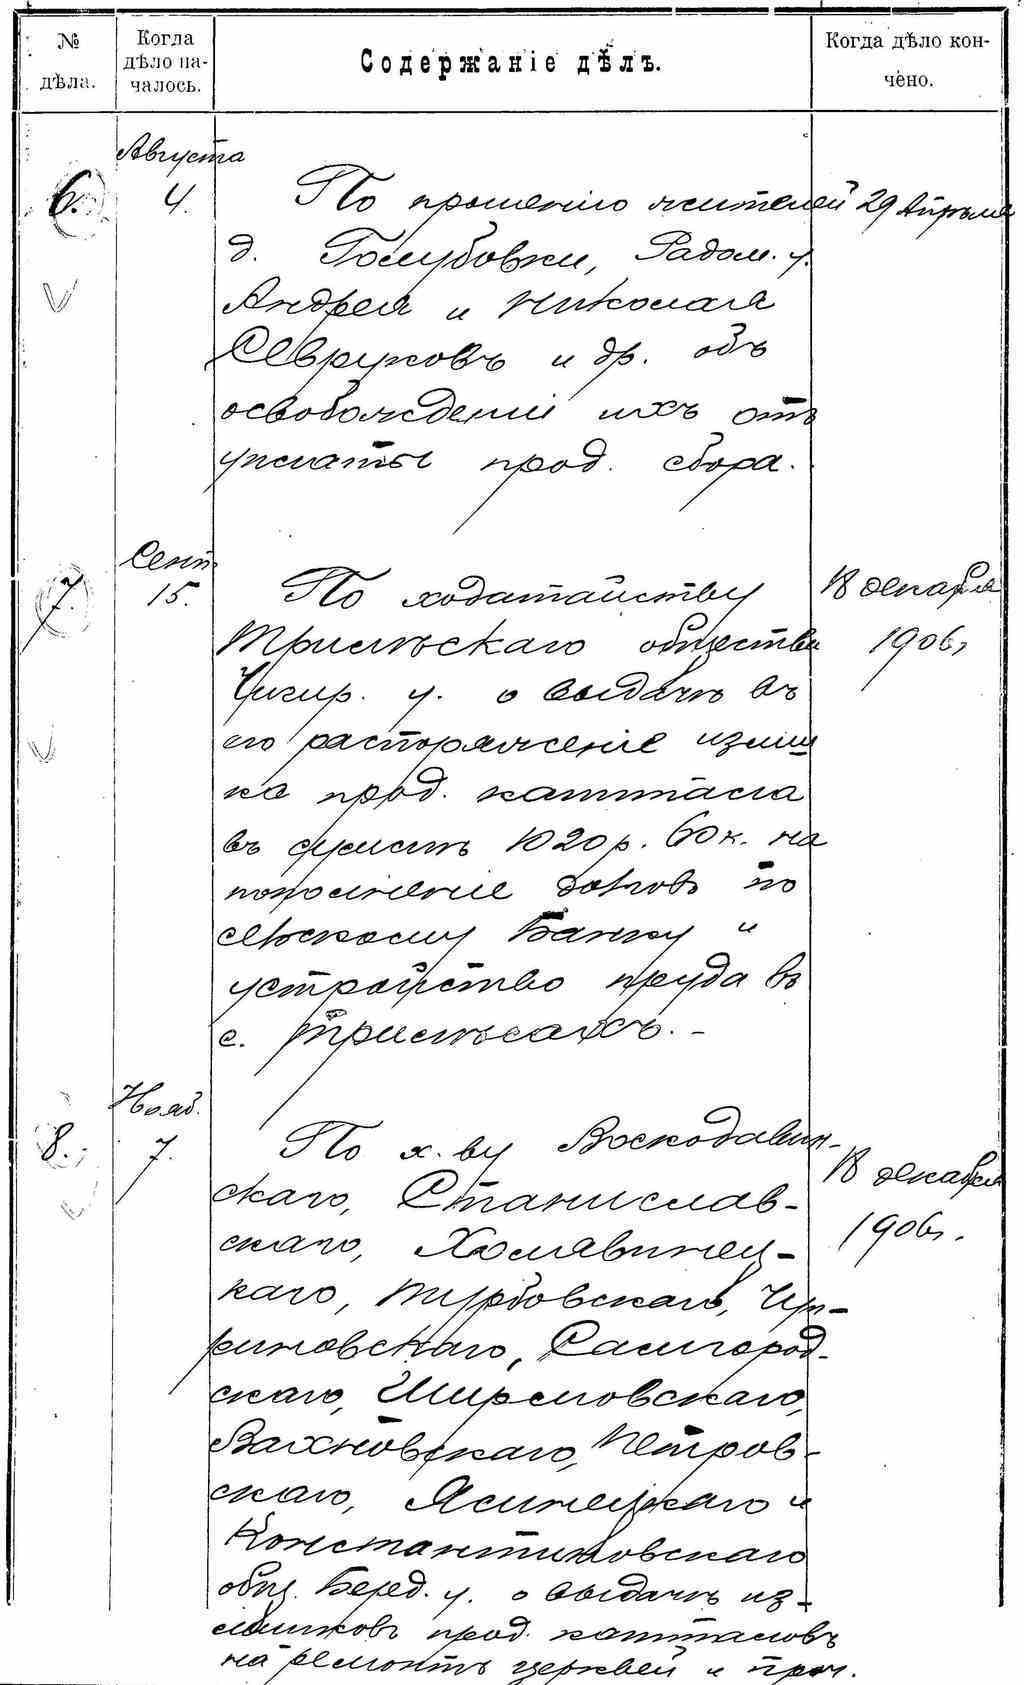 № дѣла.
Когда дѣло началось.
Содержаніе дѣлъ.
Когда дѣло кончено.
Августа
6. 4. По прошенію жителей 29 Апрѣля
д. Голубовки, Радом. у.
Андрея и Николая
Севруковъ и др. объ
освобожденіи ихъ отъ
уплаты прод. сбора.
Сент.
7. 15. По ходатайству 18 декабря
Трилѣскаго общества 1906 г.
Чигир. у. о выдачѣ въ
его распоряженіе излиш
ка прод. капитала
въ суммѣ 1020 р. 60 к. на
пополненіе долговъ по
сельскому Банку и
устройство пруда въ
с. Трилѣсахъ. -
Нояб.
8. 7. По х-ву Воскодавин-
скаго, Станислав- 18 декабря
скаго, Холявинец- 1906 г.
каго, Турбовскаго, Чуп-
риновскаго, Самгород-
скаго, Ширмовскаго,
Вахновскаго, Петров-
скаго, Ясинецкаго и
Константиновскаго
общ. Берд. у. о выдачѣ из-
лишковъ прод. капиталовъ
на ремонтъ церквей и проч.